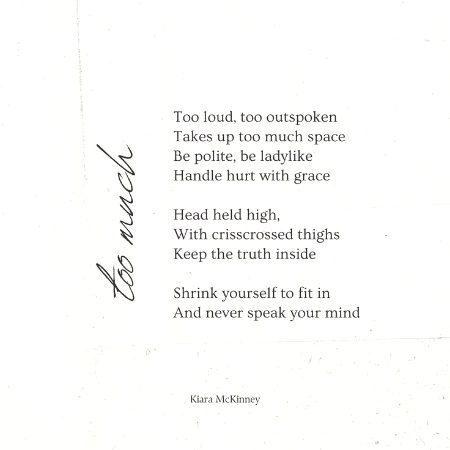 too much
Too loud, too outspoken
Takes up too much space
Be polite, be ladylike
Handle hurt with grace
Head held high,
With crisscrossed thighs
Keep the truth inside
Shrink yourself to fit in
And never speak your mind
Kiara McKinney